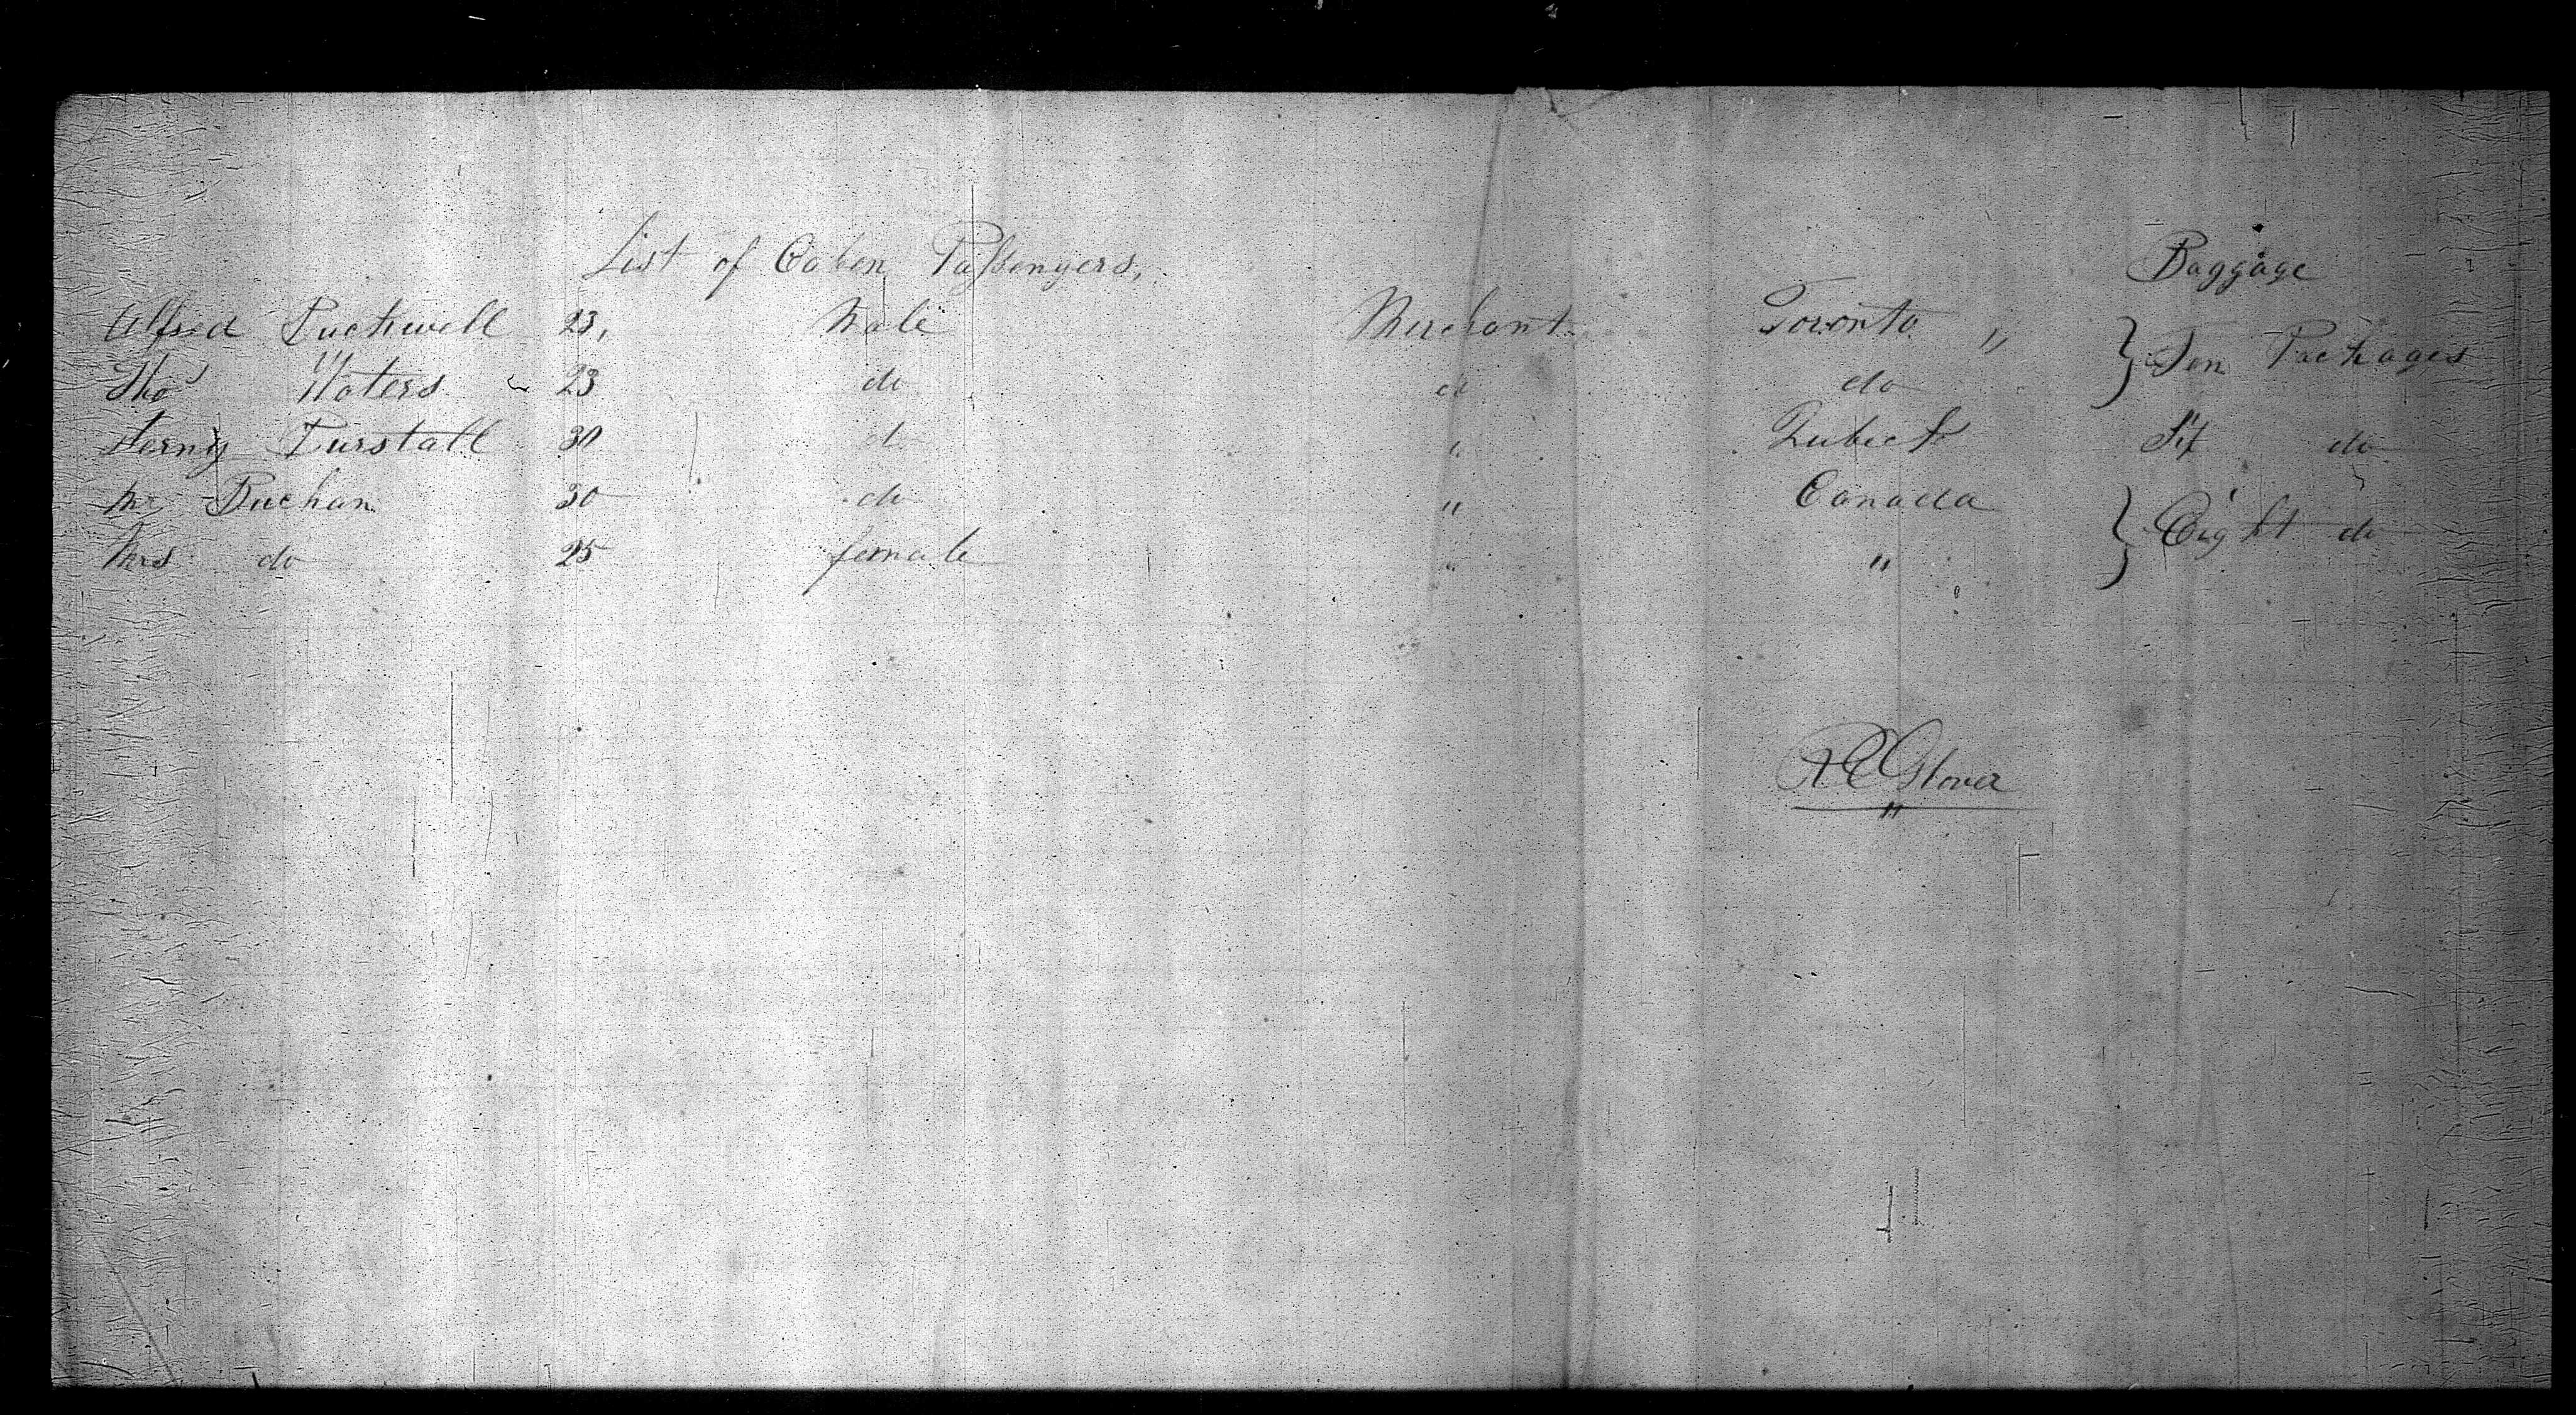 List of Caben Passengers,
Baggage
Alfred Puckwell 23, Male Merchant Toronto " } Ten Packages
Thos Waters 23 do do do
Turstall 30 do " Qubeck Six do
Mr Buchan 30 do " Canada } Eight do
Mrs do 25 female " "
Glover